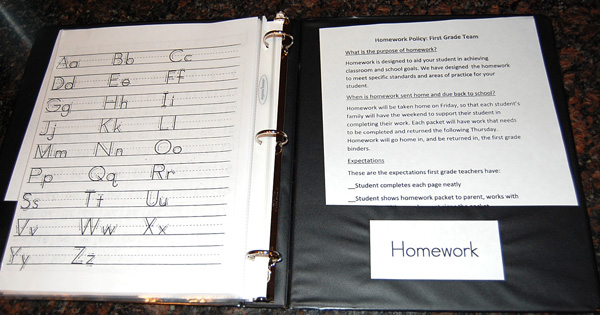 Aa Bb Cc
Dd Ee Ff
Gg Hh Ii
Jj Kk Ll
Mm Nn Oo
Pp Qq Rr
Ss Tt Uu
Vv Ww Xx
Yy Zz
Homework Policy: First Grade Team
What is the purpose of homework?
Homework is designed to aid your student in achieving
classroom and school goals. We have designed the homework
to meet specific standards and areas of practice for your
student.
When is homework sent home and due back to school?
Homework will be taken home on Friday, so that each student's
family will have the weekend to support their student in
completing their work. Each packet will have work that needs
to be completed and returned the following Thursday.
Homework will go home in, and be returned in, the first grade
binders.
Expectations
These are the expectations first grade teachers have:
__Student completes each page neatly
__Student shows homework packet to parent, works with
Homework